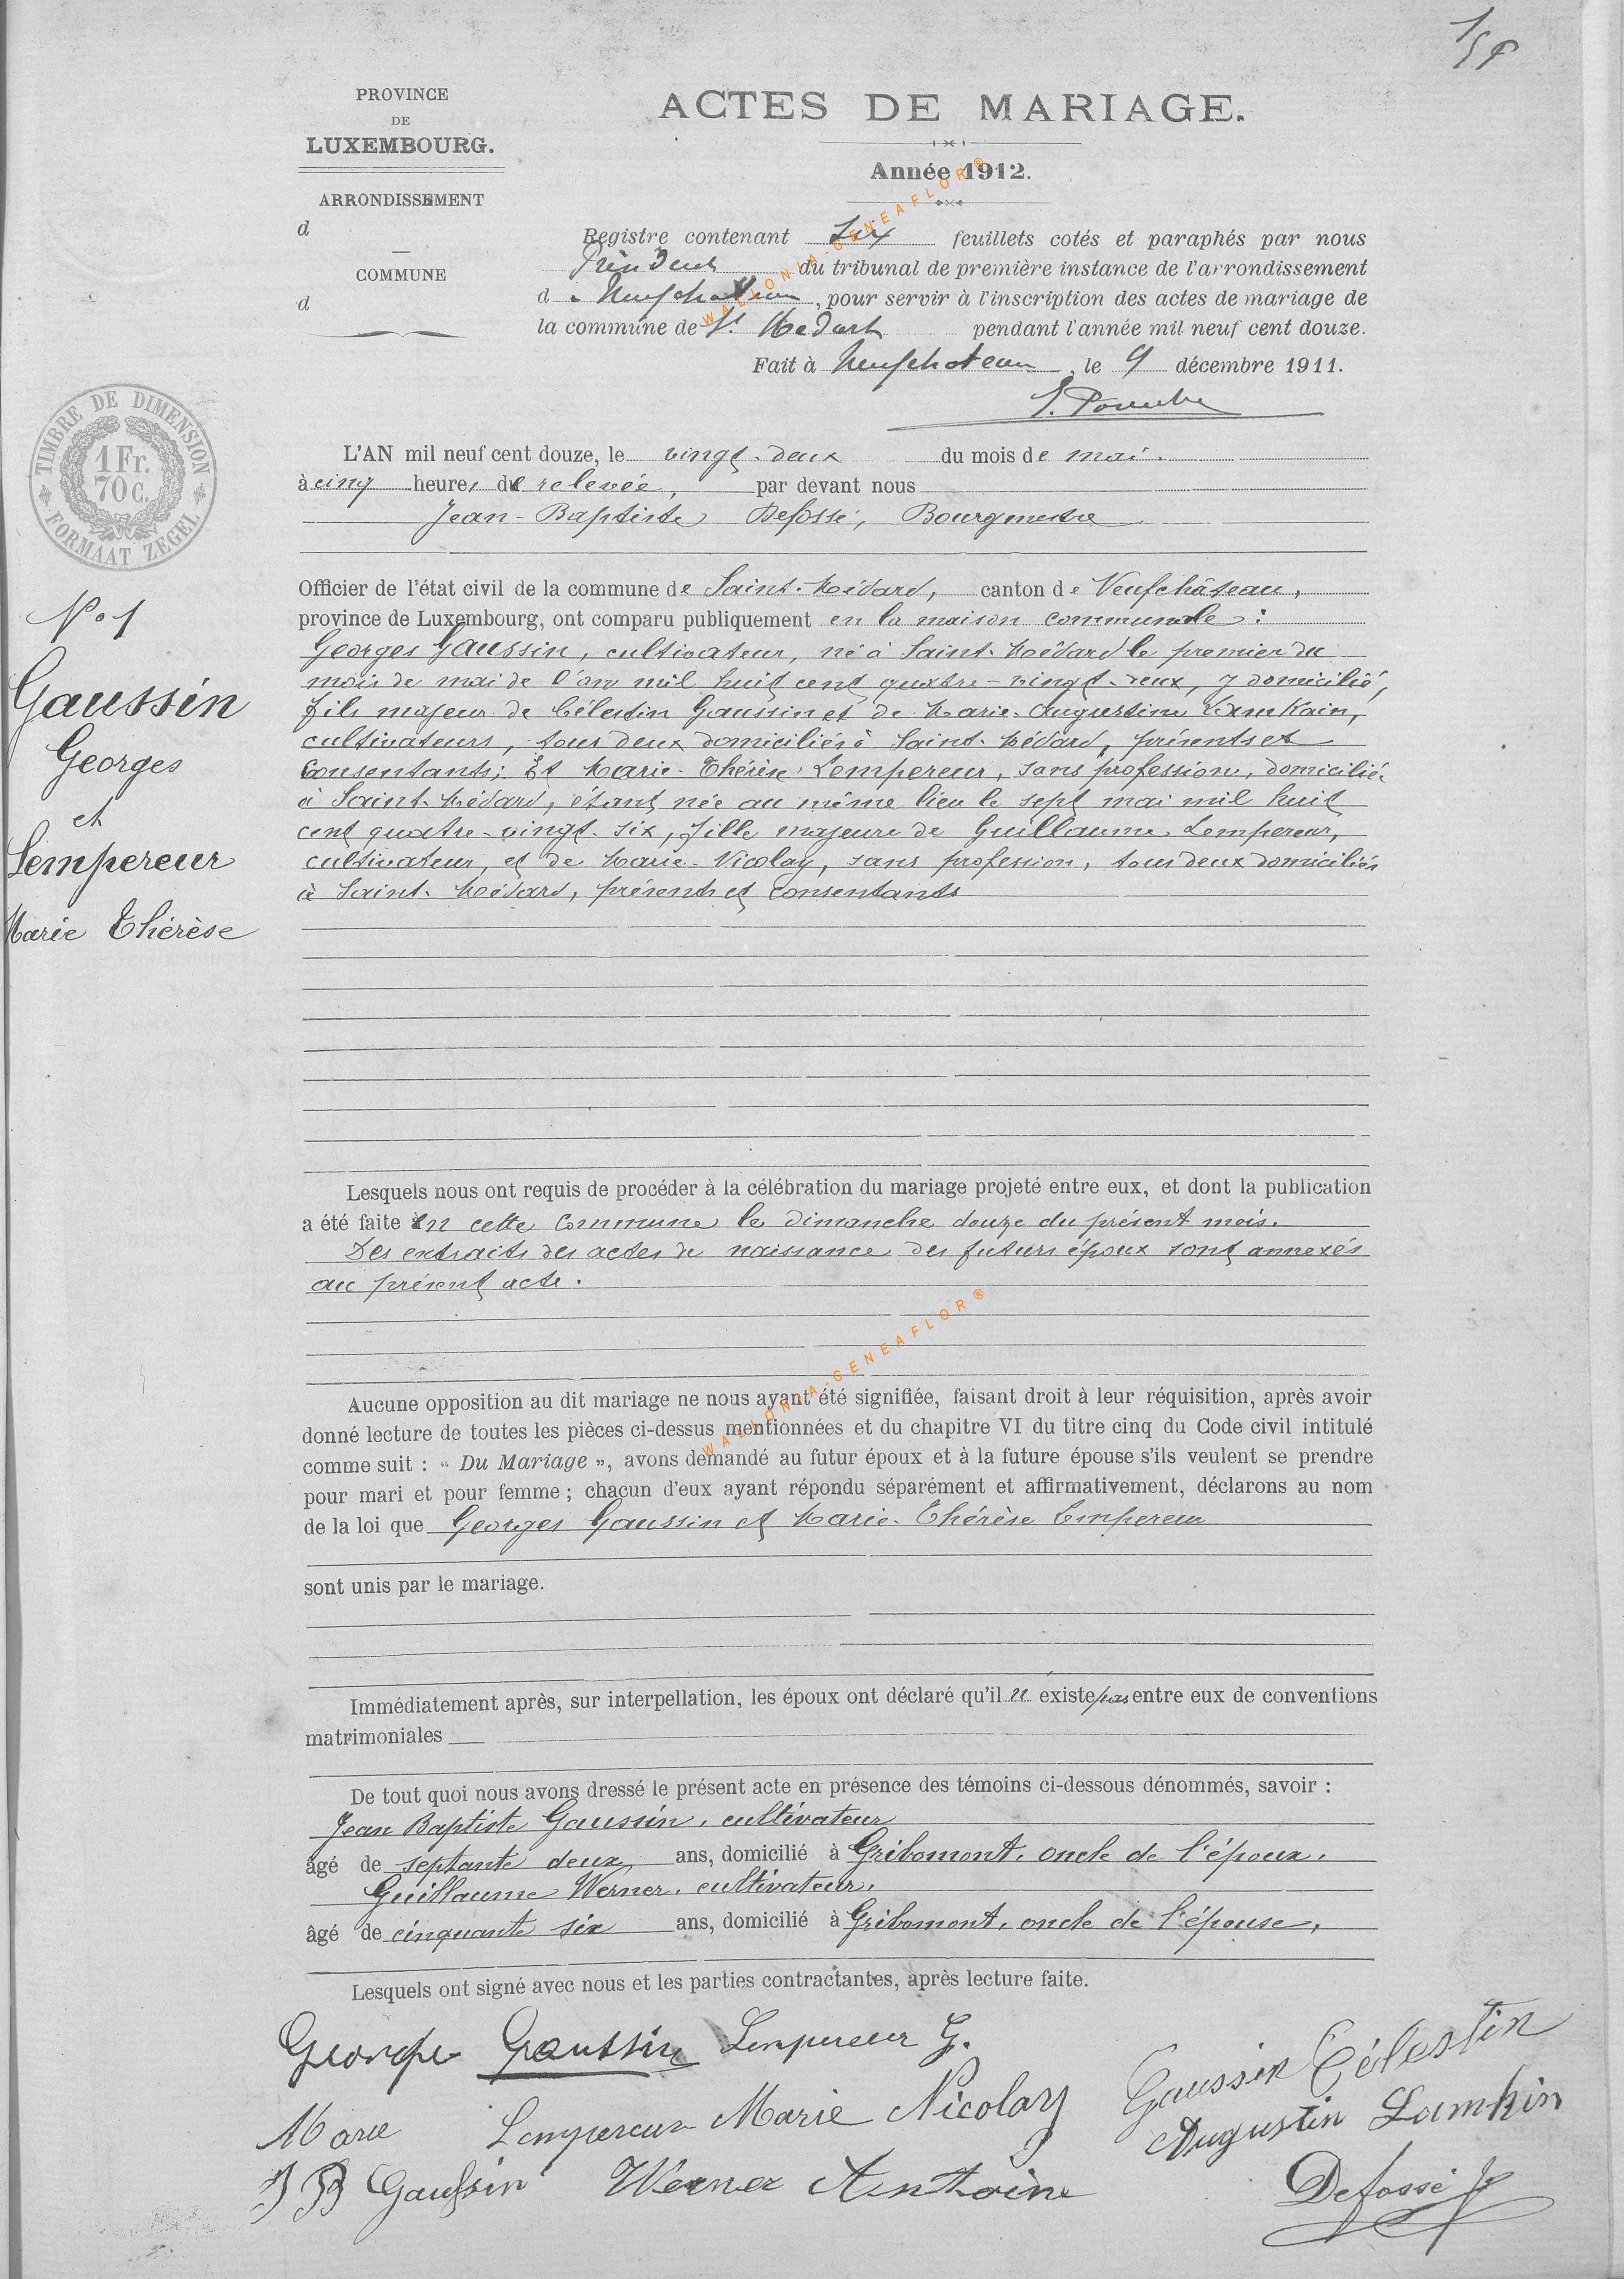 PROVINCE
DE
LUXEMBOURG.
ARRONDISSEMENT
d
COMMUNE
d
ACTES DE MARIAGE.
Année 1912.
Registre contenant Six feuillets cotés et paraphés par nous
Président du tribunal de première instance de l'arrondissement
de Neufchateau, pour servir à l'inscription des actes de mariage de
la commune de St Médard pendant l'année mil neuf cent douze.
Fait à Neufchateau, le 9 décembre 1911.
TIMBRE DE DIMENSION
1 Fr.
70 c.
FORMAAT ZEGEL
L'AN mil neuf cent douze, le vingt-deux du mois de mai.
à cinq heures de relevée, par devant nous
Jean-Baptiste Defossé, Bourgmestre
Officier de l'état civil de la commune de Saint-Médard, canton de Neufchâteau,
province de Luxembourg, ont comparu publiquement en la maison communale :
Georges Gaussin, cultivateur, né à Saint-Médard le premier du
mois de mai de l'an mil huit cent quatre-vingt-deux, y domicilié,
fils majeur de Célestin Gaussin et de Marie-Augustine
cultivateurs, tous deux domiciliés à Saint-Médard, présents et
consentants; Et Marie-Thérèse Lempereur, sans profession, domiciliée
à Saint-Médard, étant née au même lieu le sept mai mil huit
cent quatre-vingt-six, fille majeure de Guillaume Lempereur,
cultivateur, et de Marie Nicolay, sans profession, tous deux domiciliés
à Saint-Médard, présents et consentants
No 1
Gaussin
Georges
et
Lempereur
Marie Thérèse
Lesquels nous ont requis de procéder à la célébration du mariage projeté entre eux, et dont la publication
a été faite en cette commune le dimanche douze du présent mois.
Des extraits des actes de naissance des futurs époux sont annexés
au présent acte.
Aucune opposition au dit mariage ne nous ayant été signifiée, faisant droit à leur réquisition, après avoir
donné lecture de toutes les pièces ci-dessus mentionnées et du chapitre VI du titre cinq du Code civil intitulé
comme suit : « Du Mariage », avons demandé au futur époux et à la future épouse s'ils veulent se prendre
pour mari et pour femme ; chacun d'eux ayant répondu séparément et affirmativement, déclarons au nom
de la loi que Georges Gaussin et Marie-Thérèse Lempereur
sont unis par le mariage.
Immédiatement après, sur interpellation, les époux ont déclaré qu'il n'existe pas entre eux de conventions
matrimoniales
De tout quoi nous avons dressé le présent acte en présence des témoins ci-dessous dénommés, savoir :
Jean Baptiste Gaussin, cultivateur
âgé de septante deux ans, domicilié à Gribomont, oncle de l'époux,
Guillaume Werner, cultivateur,
âgé de cinquante six ans, domicilié à Gribomont, oncle de l'épouse,
Lesquels ont signé avec nous et les parties contractantes, après lecture faite.
George Gaussin Lempereur G. Gaussin Célestin
Marie Lempereur Marie Nicolay Augustin Lamkin
J B Gaussin Werner Antoine Defossé
WALLONIA-GENEAFLOR®
WALLONIA-GENEAFLOR®